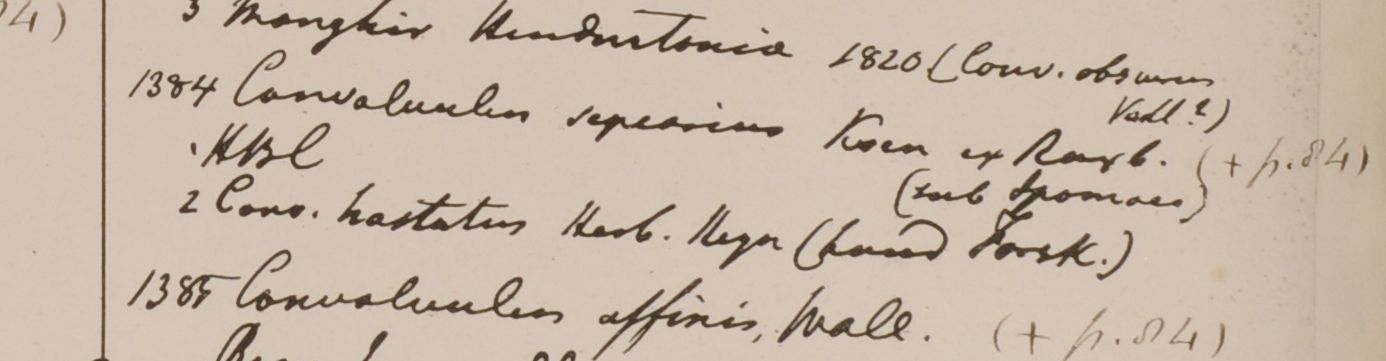 84)
3 Monghir Hindustania 1820 (Conv. obscurus
Vahl?)
1384 Convolvulus sepiarius Koen ex Roxb. (+ p.84)
HBC
(sub Ipomaea)
2 Conv. hastatus Herb. Heyn (haud Forsk.)
1385 Convolvulus affinis, Wall. (+ p.84)